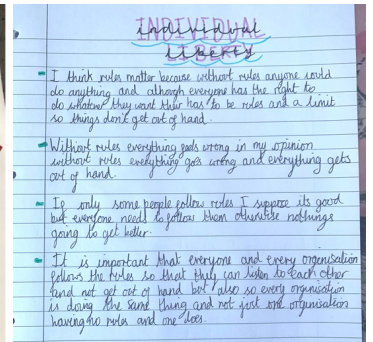 INDIVIDUAL
LIBERTY
- I think rules matter because without rules anyone could
do anything and although everyone has the right to
do whatever they want their has to be rules and a limit
so things don't get out of hand.
- Without rules everything goes wrong in my opinion
without rules everything goes wrong and everything gets
out of hand.
- If only some people follow rules I suppose its good
but everyone needs to follow them otherwise nothings
going to get better.
- It is important that everyone and every organisation
follows the rules so that they can listen to each other
and not get out of hand but also so every organisation
is doing the same thing and not just one organisation
having no rules and one does.